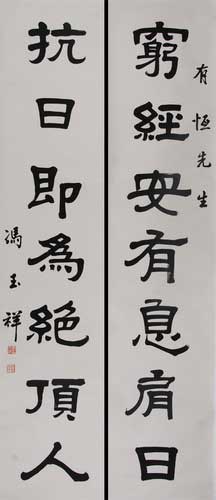 有恒先生
窮經安有息肩日
抗日即為絕頂人
馮玉祥